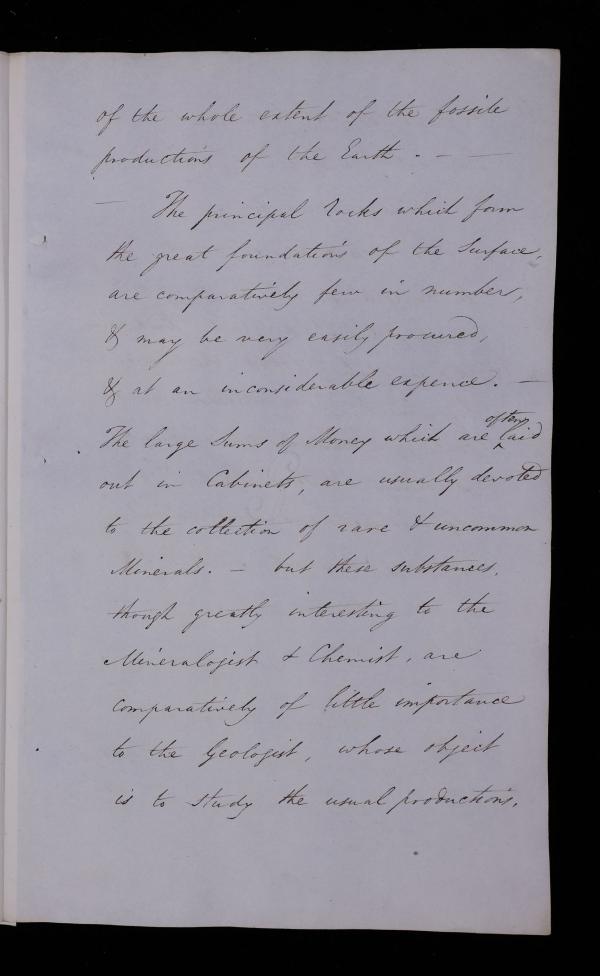 of the whole extent of the fossile
productions of the Earth. - -
- The principal rocks which form
the great foundations of the Surface,
are comparatively few in number,
& may be very easily procured,
& at an inconsiderable expence. -
The large Sums of Money which are often laid
out in Cabinets, are usually devoted
to the collection of rare & uncommon
Minerals. - but these substances,
though greatly interesting to the
Mineralogist & Chemist, are
comparatively of little importance
to the Geologist, whose object
is to study the usual productions.